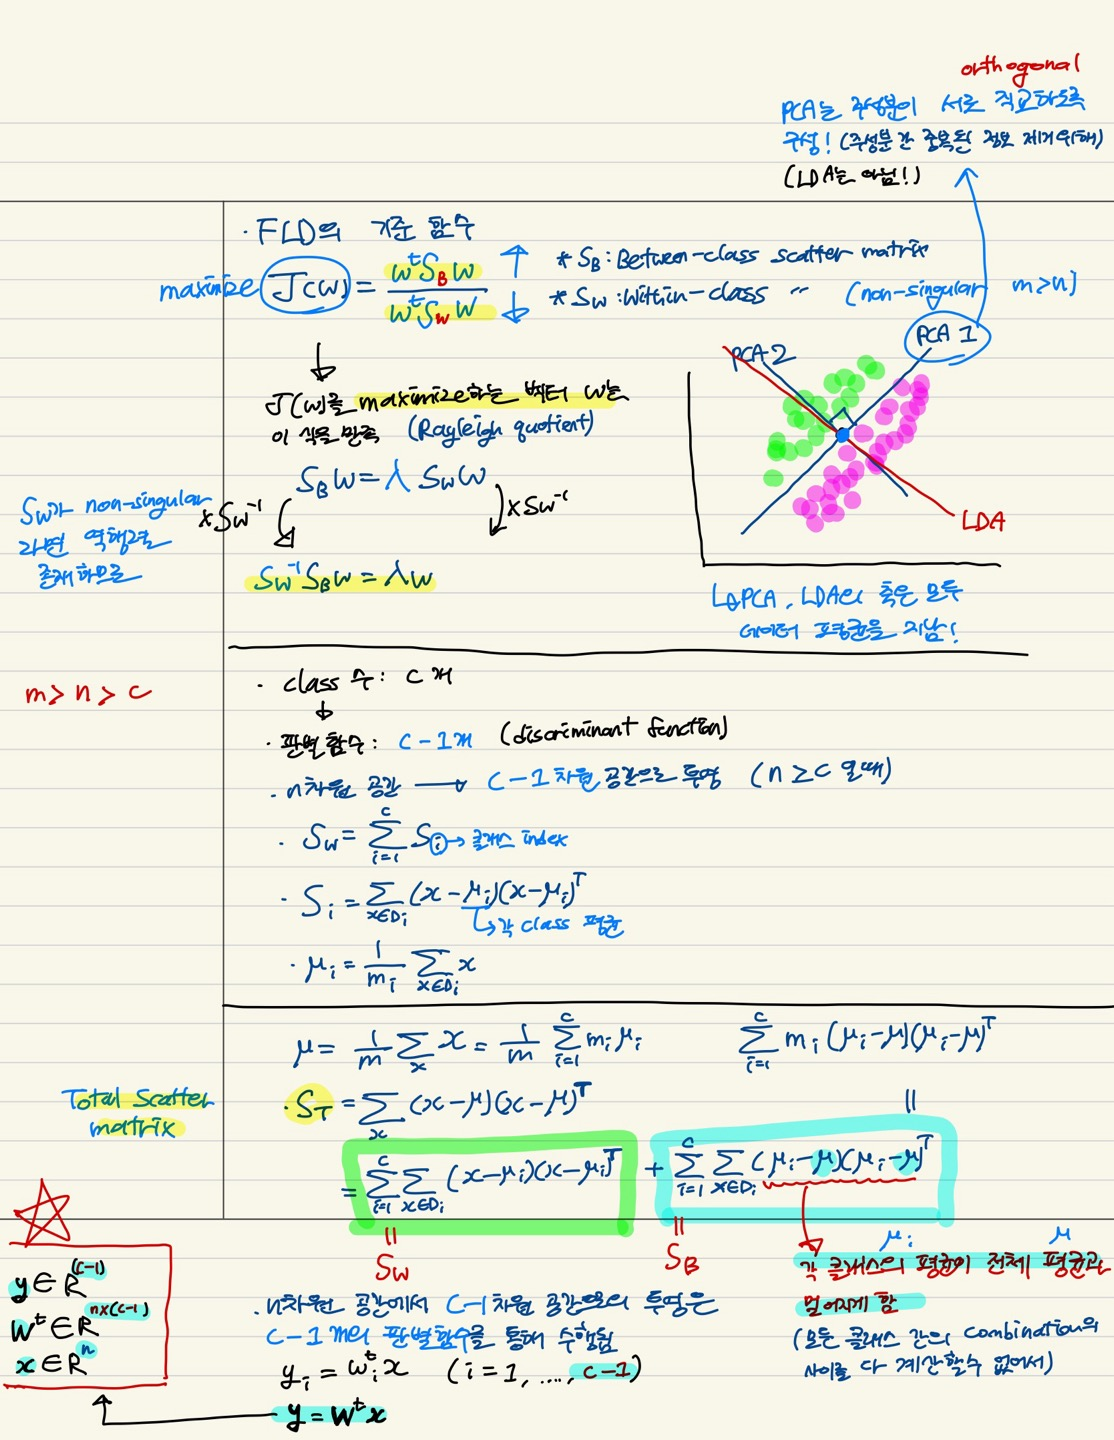 orthogonal
PCA는 주성분이 서로 직교하도록
구성! (주성분 간 중복된 정보 제거 위해)
(LDA는 아님!)
· FLD의 기준 함수
maximize J(w) = wᵗS_B w / wᵗS_w w ↑ ↓
* S_B : Between-class scatter matrix
* S_w : Within-class 〃 (non-singular m>n)
J(w)를 maximize하는 벡터 w는
이 식을 만족 (Rayleigh quotient)
S_B w = λ S_w w
S_w가 non-singular
라면 역행렬
존재하므로
× S_w⁻¹
× S_w⁻¹
S_w⁻¹ S_B w = λw
PCA 2
PCA 1
LDA
↳ PCA, LDA의 축은 모두
데이터 평균을 지남!
m > n > c
· class 수 : c 개
↓
· 판별함수 : c-1개 (discriminant function)
· n차원 공간 → c-1 차원 공간으로 투영 (n ≥ c 일때)
· S_w = Σ_{i=1}^{c} S_i → 클래스 index
· S_i = Σ_{x∈D_i} (x-μ_i)(x-μ_i)ᵀ
↳ 각 class 평균
· μ_i = 1/m_i Σ_{x∈D_i} x
μ = 1/m Σ_x x = 1/m Σ_{i=1}^{c} m_i μ_i
Σ_{i=1}^{c} m_i (μ_i-μ)(μ_i-μ)ᵀ
=
Total Scatter
matrix
· S_T = Σ_x (x-μ)(x-μ)ᵀ
= Σ_{i=1}^{c} Σ_{x∈D_i} (x-μ_i)(x-μ_i)ᵀ + Σ_{i=1}^{c} Σ_{x∈D_i} (μ_i-μ)(μ_i-μ)ᵀ
= S_w
= S_B
μ_i μ
각 클래스의 평균이 전체 평균과
멀어지게 함
(모든 클래스 간의 combination의
사이를 다 계산할 수 없어서)
y ∈ R^(c-1)
Wᵗ ∈ R^{n×(c-1)}
x ∈ R^n
· n차원 공간에서 c-1 차원 공간으로의 투영은
c-1 개의 판별함수를 통해 수행됨
y_i = w_iᵗ x (i = 1, ...., c-1)
y = Wᵗx